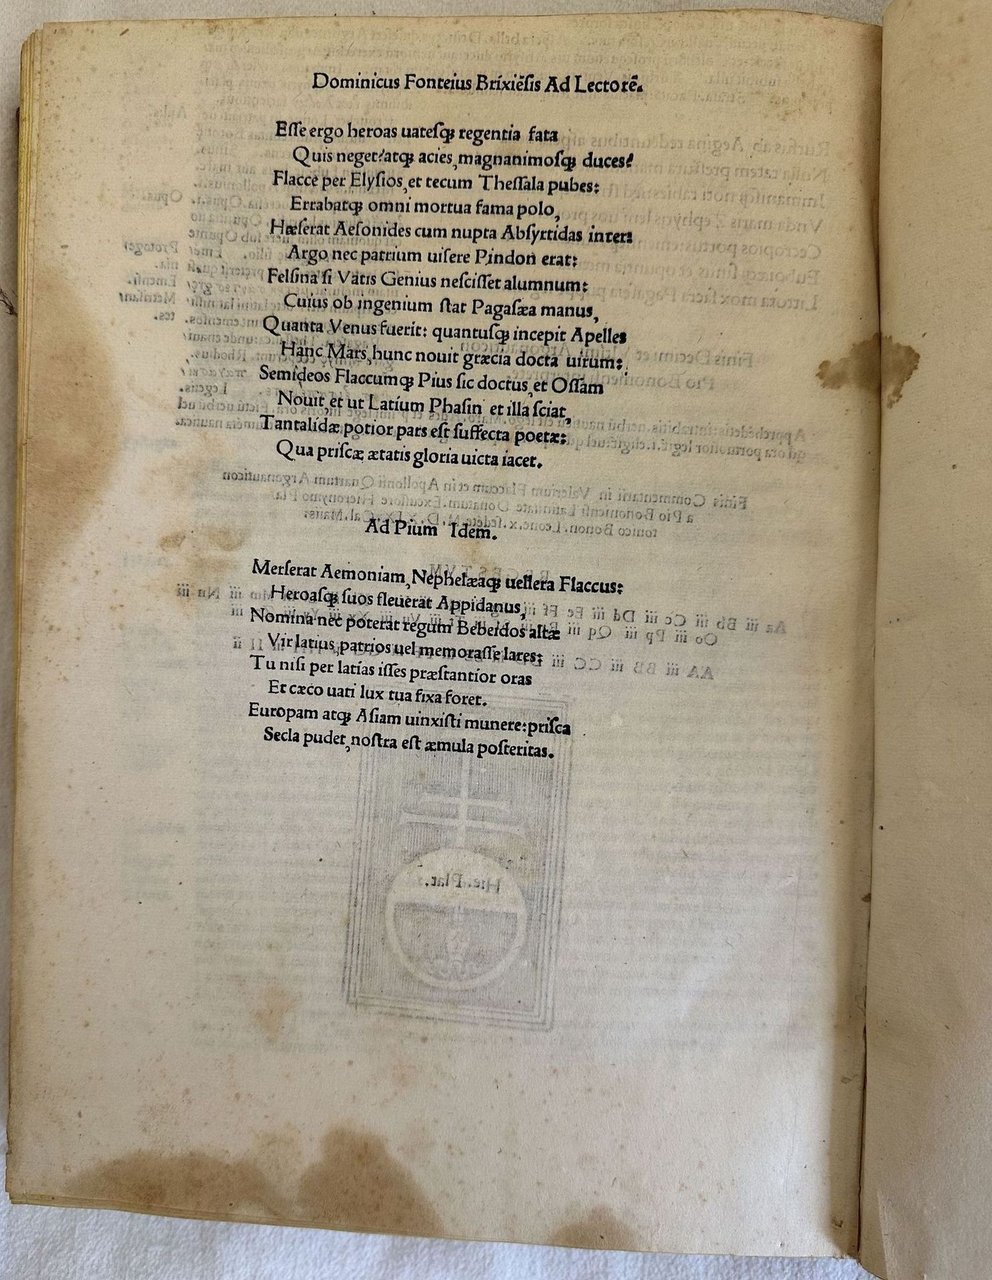 Dominicus Fonteius Brixiẽsis Ad Lectorẽ.
Esse ergo heroas uatesqꝫ regentia fata
Quis neget?atqꝫ acies, magnanimosqꝫ duces?
Flacce per Elysios, et tecum Thessala pubes:
Errabatqꝫ omni mortua fama polo,
Hæserat Aesonides cum nupta Absyrtidas inter:
Argo nec patrium uisere Pindon erat:
Felsina si Vatis Genius nescisset alumnum:
Cuius ob ingenium stat Pagasæa manus,
Quanta Venus fuerit: quantusqꝫ incepit Apelles
Hanc Mars, hunc nouit græcia docta uirum:
Semideos Flaccumqꝫ Pius sic doctus, et Ossam
Nouit, et ut Latium Phasin et illa sciat,
Tantalidæ potior pars est suffecta poetæ:
Qua priscæ ætatis gloria uicta iacet.
Ad Pium Idem.
Merserat Aemoniam, Nephelæaqꝫ uellera Flaccus:
Heroasqꝫ suos fleuerat Appidanus,
Nomina nec poterat regum Bebeidos altæ
Vir latius, patrios uel memorasse lares:
Tu nisi per latias isses præstantior oras
Et cæco uati lux tua fixa foret.
Europam atqꝫ Asiam uinxisti munere: prisca
Secla pudet, nostra est æmula posteritas.